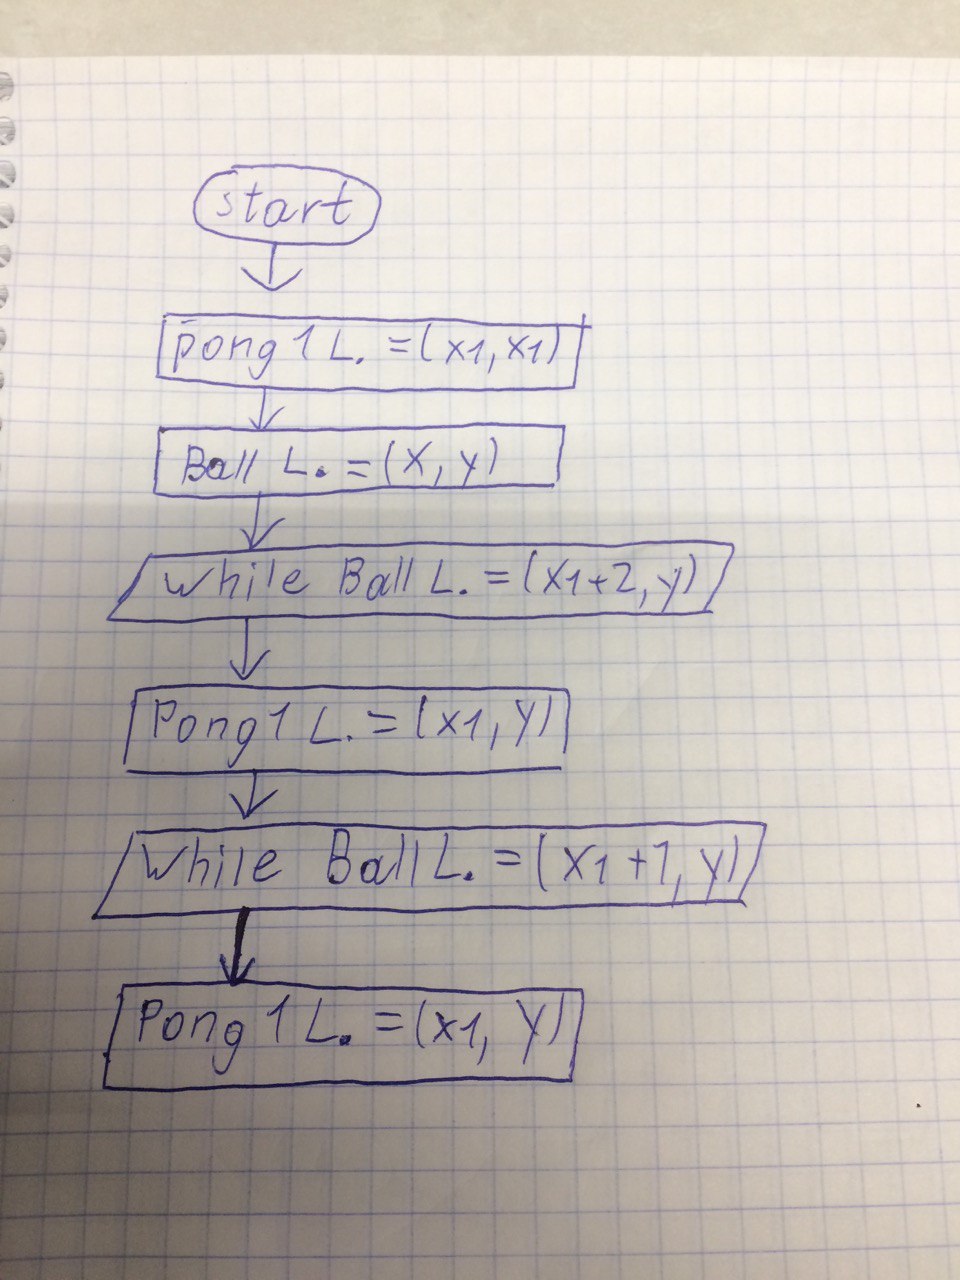 start
Pong 1 L. = (x1, x1)
Ball L. = (X, y)
While Ball L. = (x1+2, y)
Pong 1 L. = (x1, y)
While Ball L. = (x1+1, y)
Pong 1 L. = (x1, y)